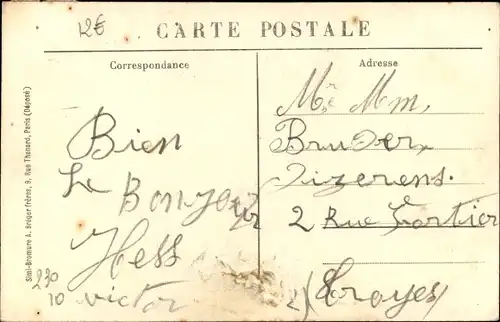 12€
CARTE POSTALE
Correspondance
Adresse
Simi-Bromure A. Breger frères, 9, Rue Thénard, Paris (Déposé)
Bien
Le
Bonjour
Hess
victor
230
10
Mr Mm,
Bruder
Tizerens.
2 Rue Lortier
(Troyes)